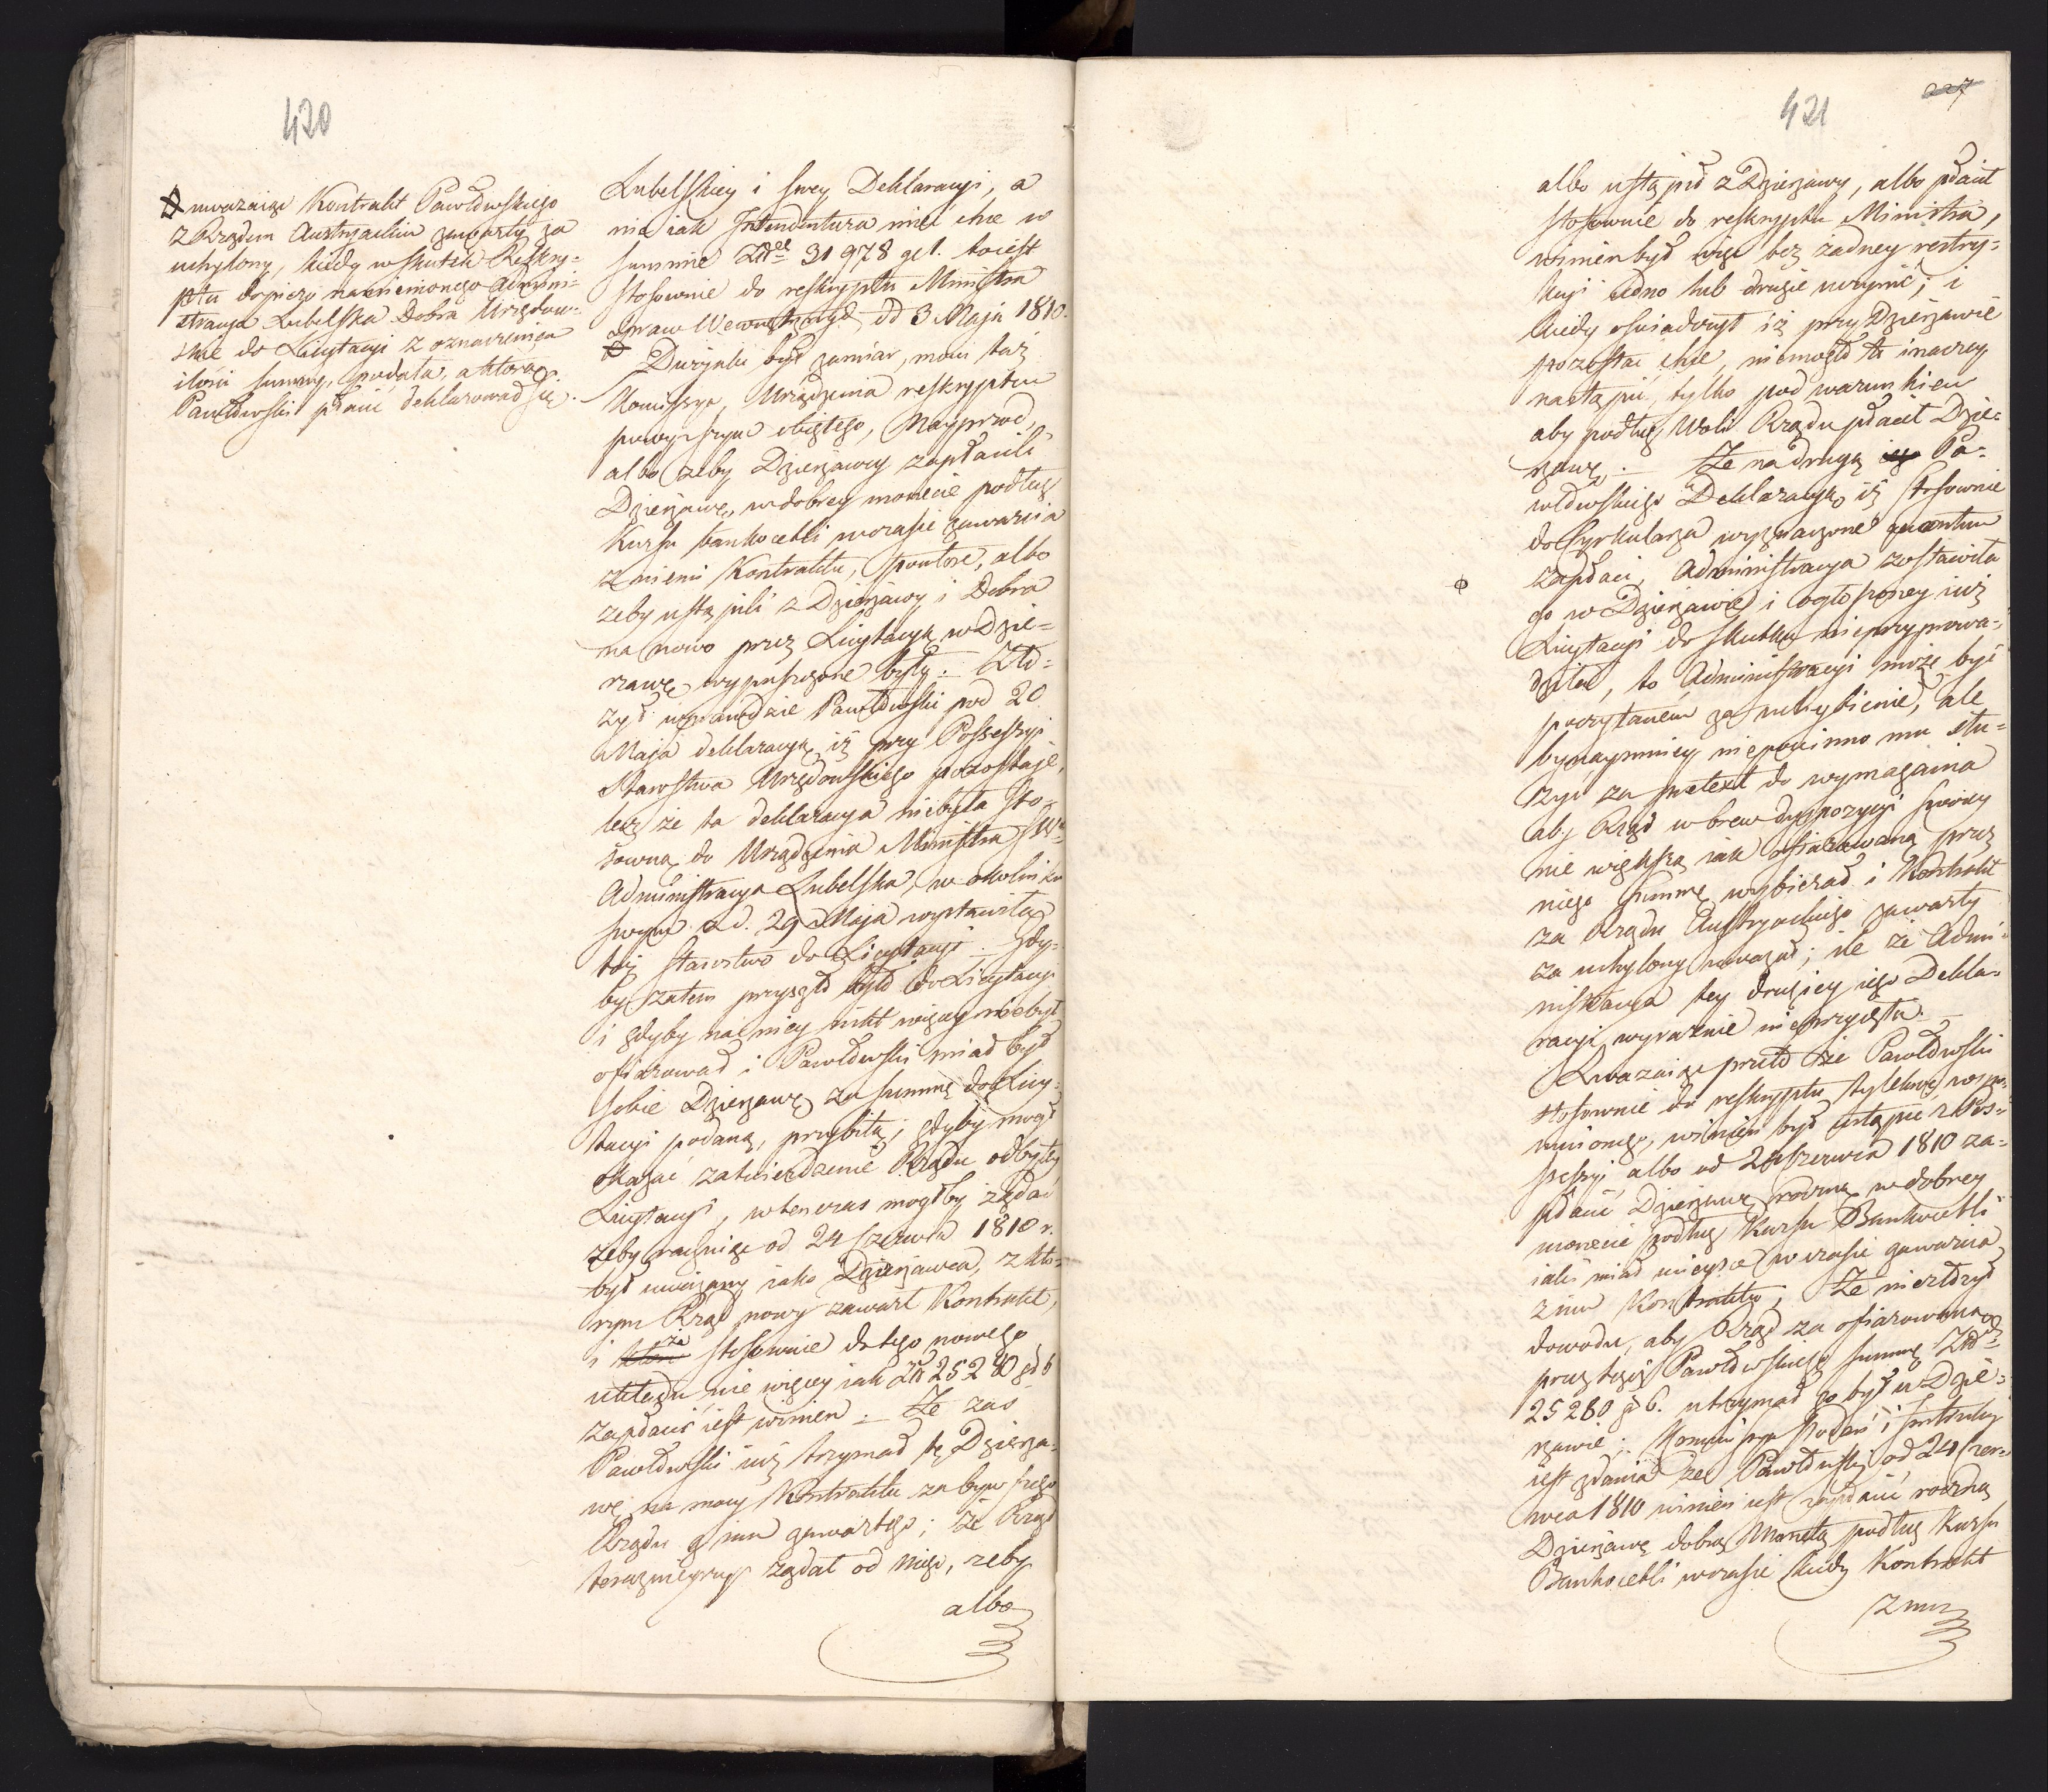 420
uwazaiąc Kontrakt Pawłowskiego
z Rządem Austryackim zawarty za
uchylony, kiedy w skutek Reskry=
ptu dopiero namienionego Admini=
stracya Lubelska Dobra Urzędow=
skie do Licytacyi z oznaczeniem
ilości summy, podała, a którą
Pawłowski płacić deklarował się.
Lubelskiey i swey Deklaracyi, a
nie iak Intendentura mieć chce w
summie Złł 31978 g 1. toiest
stosownie do reskryptu Ministra
Spraw Wewnętrznych dd 3 Maja 1810.
Dwojaki był zamiar, mówi taż
Kommissya, Urządzenia reskryptem
powyższym obiętego, Nayprzód,
albo żeby Dzierżawcy zapłacili
Dzierżawę, w dobrey monecie podług
Kursu bankocetli w czasie zawarcia
z niemi Kontraktu, powtóre, albo
żeby ustąpili z Dzierżawy i Dobra
na nowo przez Licytacyą w dzie=
rzawę wypuszczone były. Zło=
żył wprawdzie Pawłowski pod 20
Maja deklaracyą iż przy Possessyi
Starostwa Urzędowskiego pozostaje,
lecz że ta deklaracya niebyła sto=
sowną do Urządzenia Ministra SW.
Administracya Lubelska, w okolniku
swym z d. 29 Maja wystawiła
toż starostwo do Licytacyi. Gdy=
by zatem przyszło było do Licytacyi
i gdyby na niey nikt więcey niebył
ofiarował i Pawłowski miał był
sobie Dzierzawę za summę do Licy=
tacyi podaną, przybitą, gdyby mógł
okazać zatwierdzenie Rządu odbytey
Licytacyi, wtenczas mógłby żądać
żeby zacząwszy od 24 Czerwca 1810 r.
był uważany iako Dzierżawca, z któ=
rym Rząd nowy zawarł Kontrakt,
i że stosownie do tego nowego
układu, nie więcey iak Złł 25280 g 6
zapłacić iest winien. Że zaś
Pawłowski już trzymał tę Dzierża=
wę na mocy Kontraktu za bywszego
Rządu z nim zawartego; że Rząd
teraznieyszy żądał od niego, żeby
albo
227
421
albo ustąpił z Dzierżawy, albo płacił
stosownie do reskryptu Ministra,
winien był więc bez żadney restry=
kcyi iedno lub drugie uczynić; i
kiedy oświadczył iż przy Dzierżawie
pozostać chce, niemogło to inaczey
nastąpić, tylko pod warunkiem
aby podług Woli Rządu płacił Dzie=
rzawę. Że na drugą Pa=
włowskiego Deklaracyą iż stosownie
do Cyrkularza wyznaczone quantum
zapłaci, Administracya zostawiła
go w Dzierżawie i ogłoszoney już
Licytacyi do skutku nieprzyprowa=
dziła, to Administracyi może być
poczytanem za uchybienie, ale
bynaymniey niepowinno mu słu=
żyć za pretext do wymagania
aby Rząd wbrew dyspozycyi swoiey
nie większą iak ofiarowaną przez
niego summę wybierał i Kontrakt
za Rządu Austryackiego zawarty
za uchylony uważał; ile że Admi=
nistracya tey drugiey iego Dekla=
racyi wyraźnie nieprzyięła.
Zważaiąc przeto że Pawłowski
stosownie do reskryptu tylekroć wspo=
mnionego, winien był ustąpić z Pos=
sessyi albo od 24 Czerwca 1810 za=
płacić Dzierżawę roczną w dobrey
monecie podług Kursu Bankocetli
iaki miał mieysce w czasie zawarcia
z nim Kontraktu; Że niezłożył
dowodu, aby Rząd za ofiarowaną
przez tegoż Pawłowskiego summę Złł
25280 g 6. utrzymał go był w Dzie=
rzawie; Kommissya Podań i Instrukcyi
iest zdania że Pawłowski od 24 Czer=
wca 1810 winien iest zapłacić roczną
Dzierżawę dobrą Monetą podług Kursu
Bankocetli w czasie kiedy Kontrakt
z nim